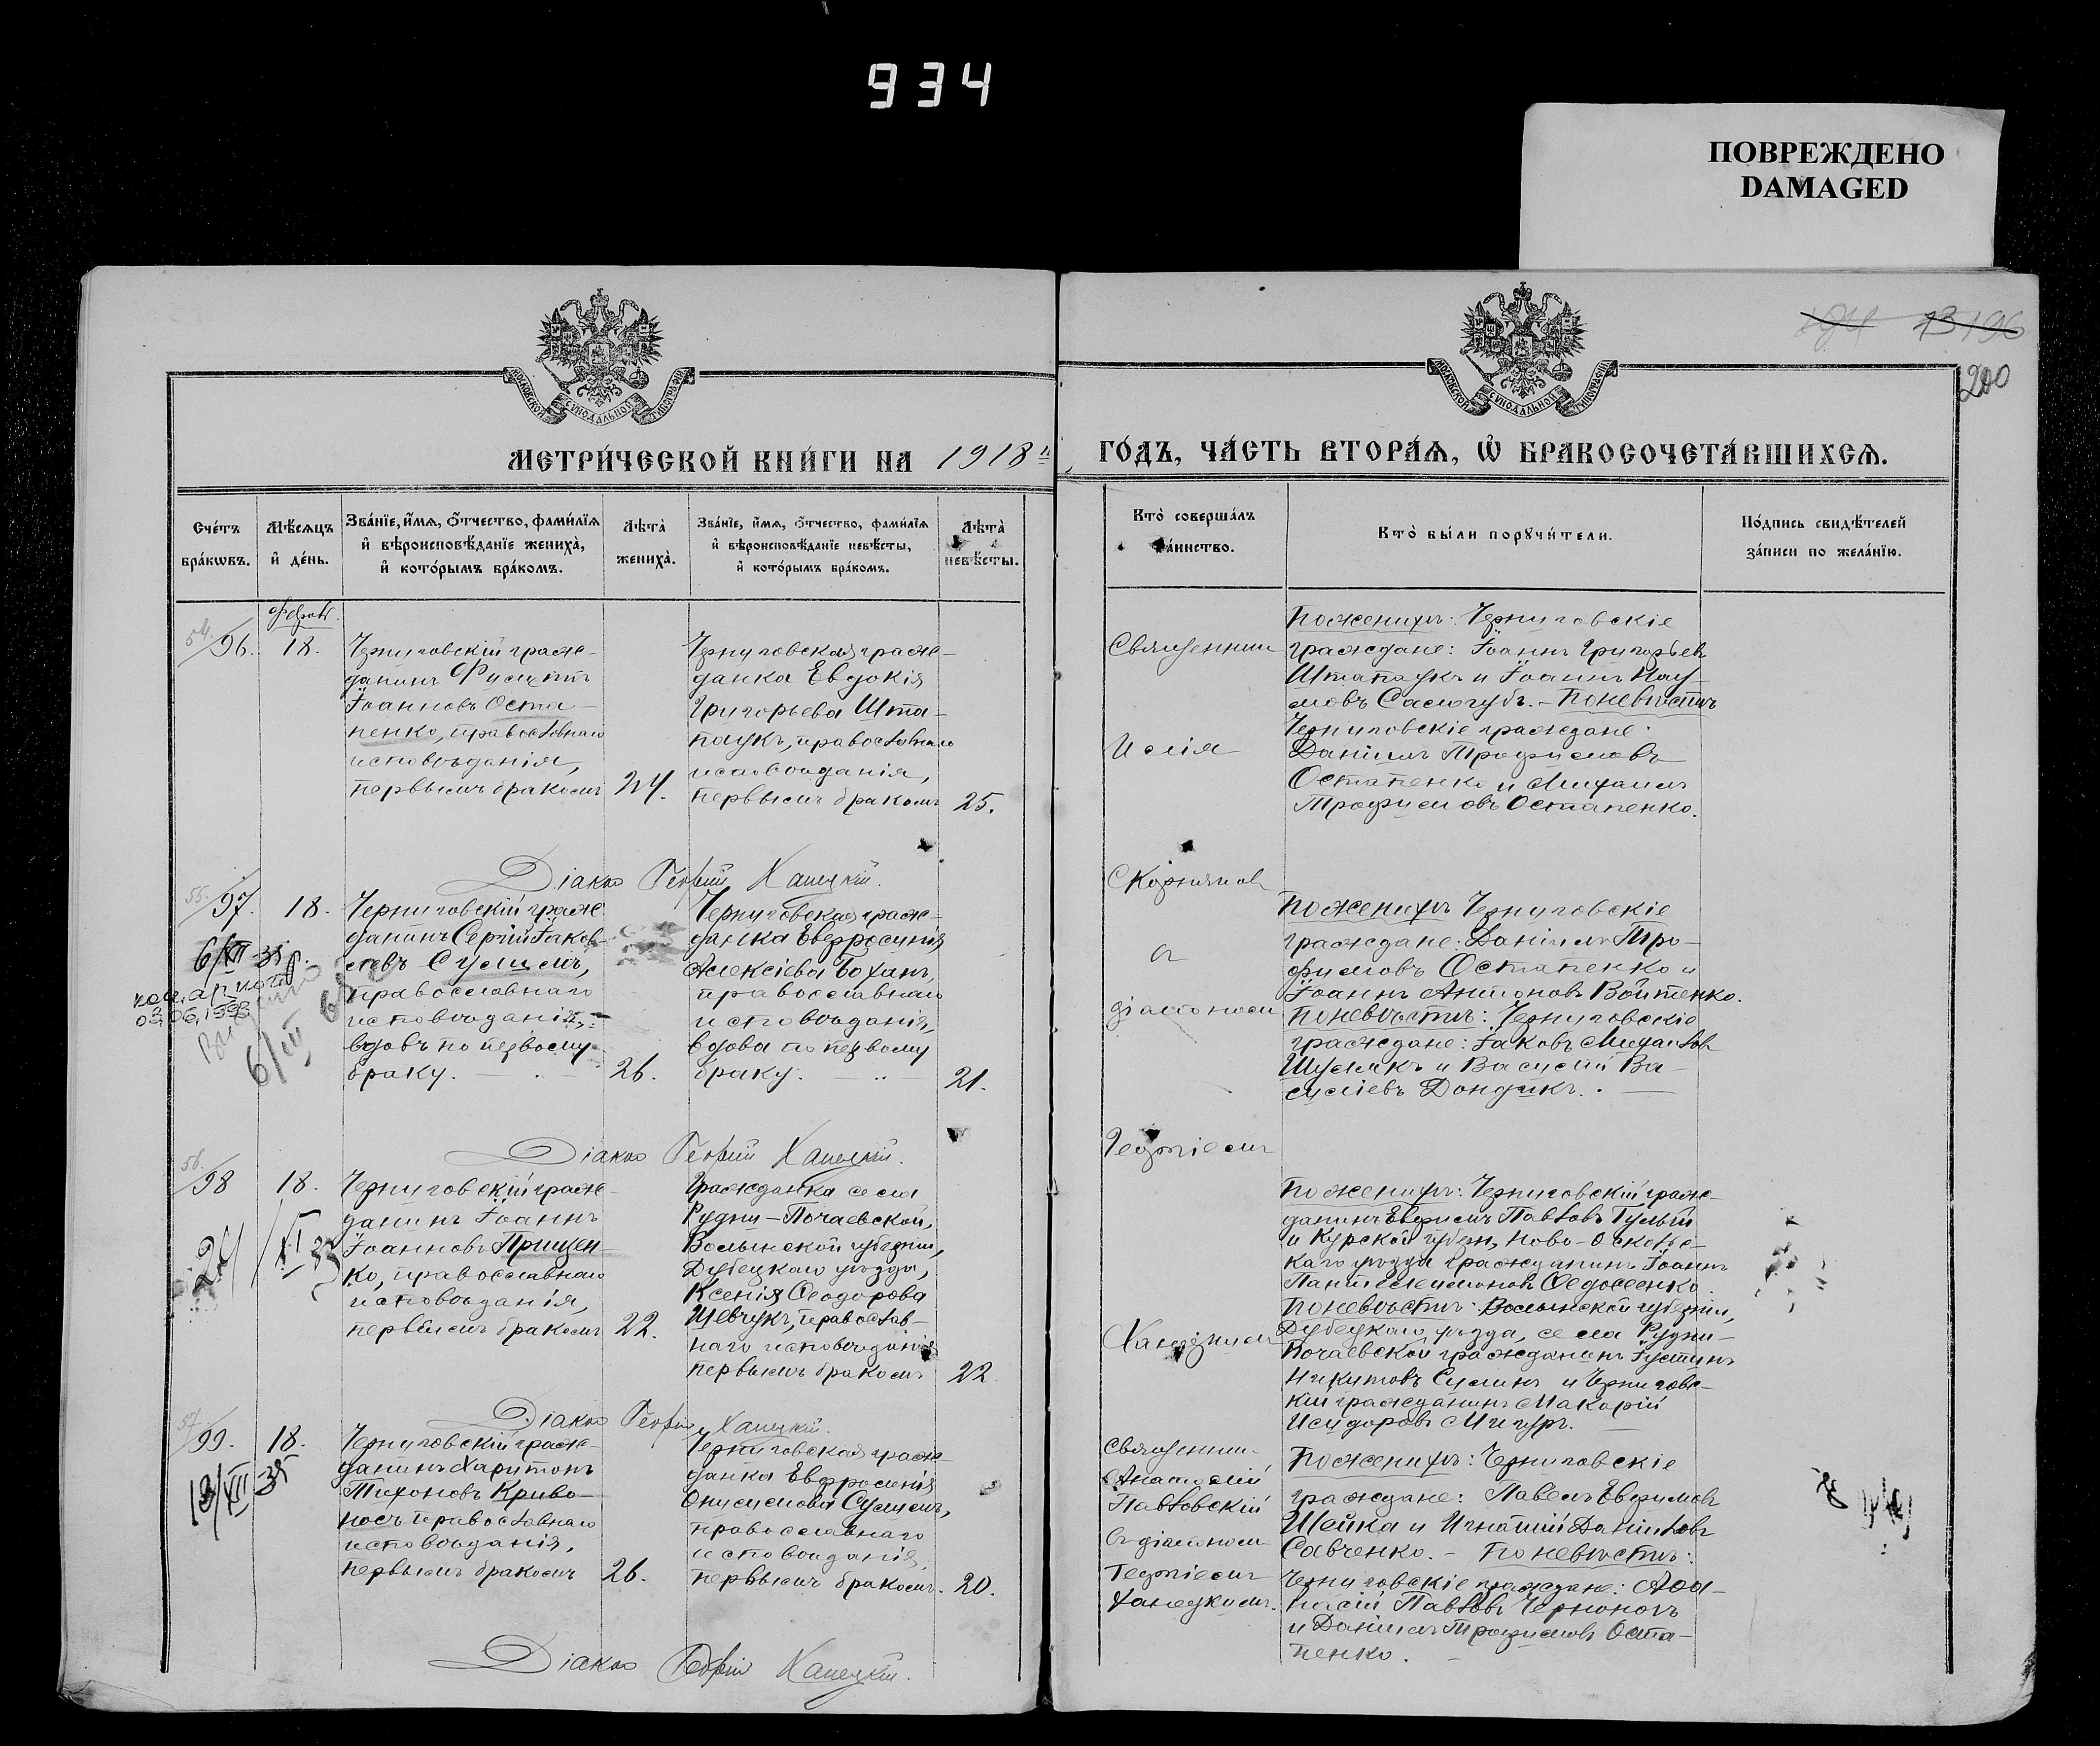 934
ПОВРЕЖДЕНО
DAMAGED
МОСКОВСКОЙ СУНОДАЛЬНОЙ ТИПОГРАФІИ
МОСКОВСКОЙ СУНОДАЛЬНОЙ ТИПОГРАФІИ
200
МЕТРИ́ЧЕСКОЙ КНИ́ГИ НА 1918й
ГО́ДЪ, ЧА́СТЬ ВТОРА́Я, Ѡ҆ БРАКОСОЧЕТА́ВШИХСЯ.
Сче́тъ
бра́ковъ.
Мѣ́сяцъ
и҆ де́нь.
Зва́нїе, и҆́мя, ѻ҆́тчество, фами́лїя
и҆ вѣроисповѣ́данїе жениха̀,
и҆ кото́рымъ бра́комъ.
Лѣта̀
жениха̀.
Зва́нїе, и҆́мя, ѻ҆́тчество, фами́лїя
и҆ вѣроисповѣ́данїе невѣ́сты,
и҆ кото́рымъ бра́комъ.
Лѣта̀
невѣ́сты.
Кто̀ соверша́лъ
та́инство.
Кто̀ бы́ли порꙋчи́тели.
По́дпись свидѣ́телей
за́писи по жела́нїю.
54.
96.
18.
Черниговскій граж-
данинъ Филиппъ
Іоанновъ Оста-
пенко, православнаго
исповѣданія,
первымъ бракомъ
24.
Черниговская граж-
данка Евдокія
Григорьева Шта-
паукъ, православнаго
исповѣданія,
первымъ бракомъ
25.
Священник
Илія
Скорняков
с
діакономъ
Георгіемъ
По женихѣ: Черниговскіе
граждане: Іоаннъ Григорьевъ
Штапаукъ и Іоаннъ Нау-
мовъ Самогубъ. – По невѣстѣ
Черниговскіе граждане:
Даніилъ Трофимовъ
Остапенко и Михаилъ
Трофимовъ Остапенко.
Діакон Георгій Ханецкій.
55.
97.
18.
Черниговскій граж
данинъ Сергій Іаков-
левъ Сулимъ,
православнаго
исповѣданія,
вдовъ по первому
браку.
26.
Черниговская граж-
данка Евфросинія
Алексіева Бохан,
православнаго
исповѣданія,
вдова по первому
браку.
21.
6/XII 35
6/III
По женихѣ Черниговскіе
граждане: Даніилъ Тро-
фимовъ Остапенко и
Іоаннъ Антоновъ Войтенко.
По невѣстѣ: Черниговскіе
граждане: Іаковъ Михаиловъ
Шулякъ и Василій Ва-
силіевъ Дондикъ.
Діакон Георгій Ханецкій.
56.
98
18.
Черниговскій граж-
данинъ Іоаннъ
Іоанновъ Прищен-
ко, православнаго
исповѣданія,
первымъ бракомъ
22.
Гражданка села
Рудни-Почаевской,
Волынской губерніи,
Дубецкаго уѣзда,
Ксенія Ѳеодорова
Шевчукъ, православ-
наго исповѣданія
первымъ бракомъ
22
По женихѣ: Черниговскій граж-
данинъ Евфимъ Павловъ Гулый
и Курской губерн, Ново-Осколь-
каго уѣзда гражданинъ Іоаннъ
Пантелеимоновъ Ѳедосенко.
По невѣстѣ: Волынской губерніи,
Дубецкаго уѣзда, села Рудни-
Почаевской гражданинъ Іустинъ
Никитовъ Сулимъ и Черниговс-
кій гражданинъ Макарій
Исидоровъ Мигуръ.
Діакон Георгій Ханецкій.
57.
99.
18.
Черниговскій граж-
данинъ Харитонъ
Тихоновъ Криво-
носъ православнаго
исповѣданія,
первымъ бракомъ
26.
Черниговская граж-
данка Евфросинія
Онисимова Сулимъ,
православнаго
исповѣданія,
первымъ бракомъ.
20.
13/XII 35
Священник
Анатолій
Павловскій
с діакономъ
Георгіемъ
Ханецкимъ.
По женихѣ: Черниговскіе
граждане: Павелъ Евфимовъ
Шейка и Игнатій Даніиловъ
Савченко. – По невѣстѣ:
Черниговскіе граждане: Аѳа-
насій Павловъ Черноногъ
и Даніилъ Трофимовъ Оста-
пенко.
Діакон Георгій Ханецкій.